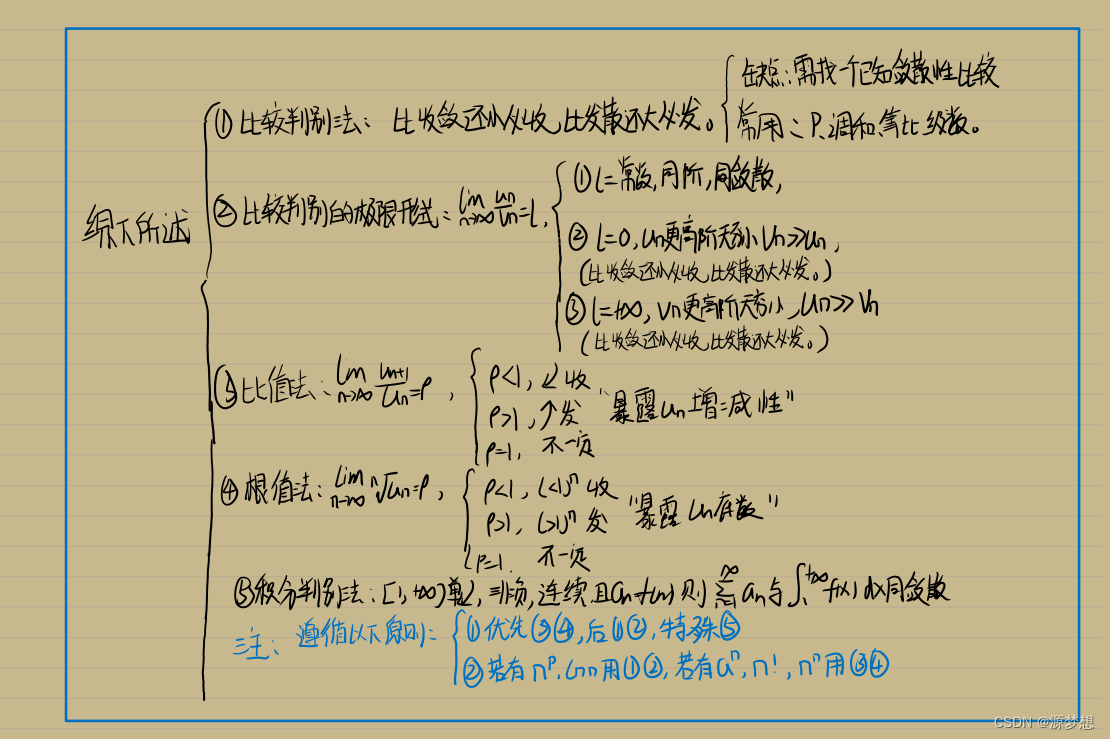 综下所述
① 比较判别法: 比收敛还小必收,比发散还大必发。
缺点:需找一个已知敛散性比较
常用:P、调和、等比级数。
② 比较判别的极限形式: lim n→∞ un/vn = l,
① l=常数,同阶,同敛散,
② l=0, un更高阶无穷小 vn≫un,
(比收敛还小必收,比发散还大必发。)
③ l=+∞, vn更高阶无穷小, un≫vn
(比收敛还小必收,比发散还大必发。)
③ 比值法: lim n→∞ un+1/un = ρ,
ρ<1, ↙收
ρ>1, ↗发
ρ=1, 不一定
"暴露un增减性"
④ 根值法: lim n→∞ n√un = ρ,
ρ<1, (<1)^n 收
ρ>1, (>1)^n 发
ρ=1 不一定
"暴露un底数"
⑤ 积分判别法: [1,+∞)单↓,非负,连续且an=f(n)则 ∑ n=1 ∞ an与∫ 1 +∞ f(x)dx同敛散
注: 遵循以下原则:
① 优先③④,后①②,特殊⑤
② 若有n^p, lnn用①②,若有a^n, n!, n^n用③④
CSDN @源梦想